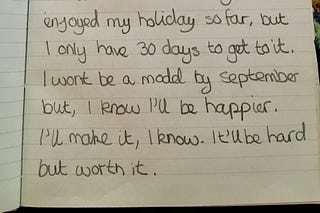 enjoyed my holiday so far, but
I only have 30 days to get to it.
I wont be a model by september
but, I know I'll be happier.
I'll make it, I know. It'll be hard
but worth it.